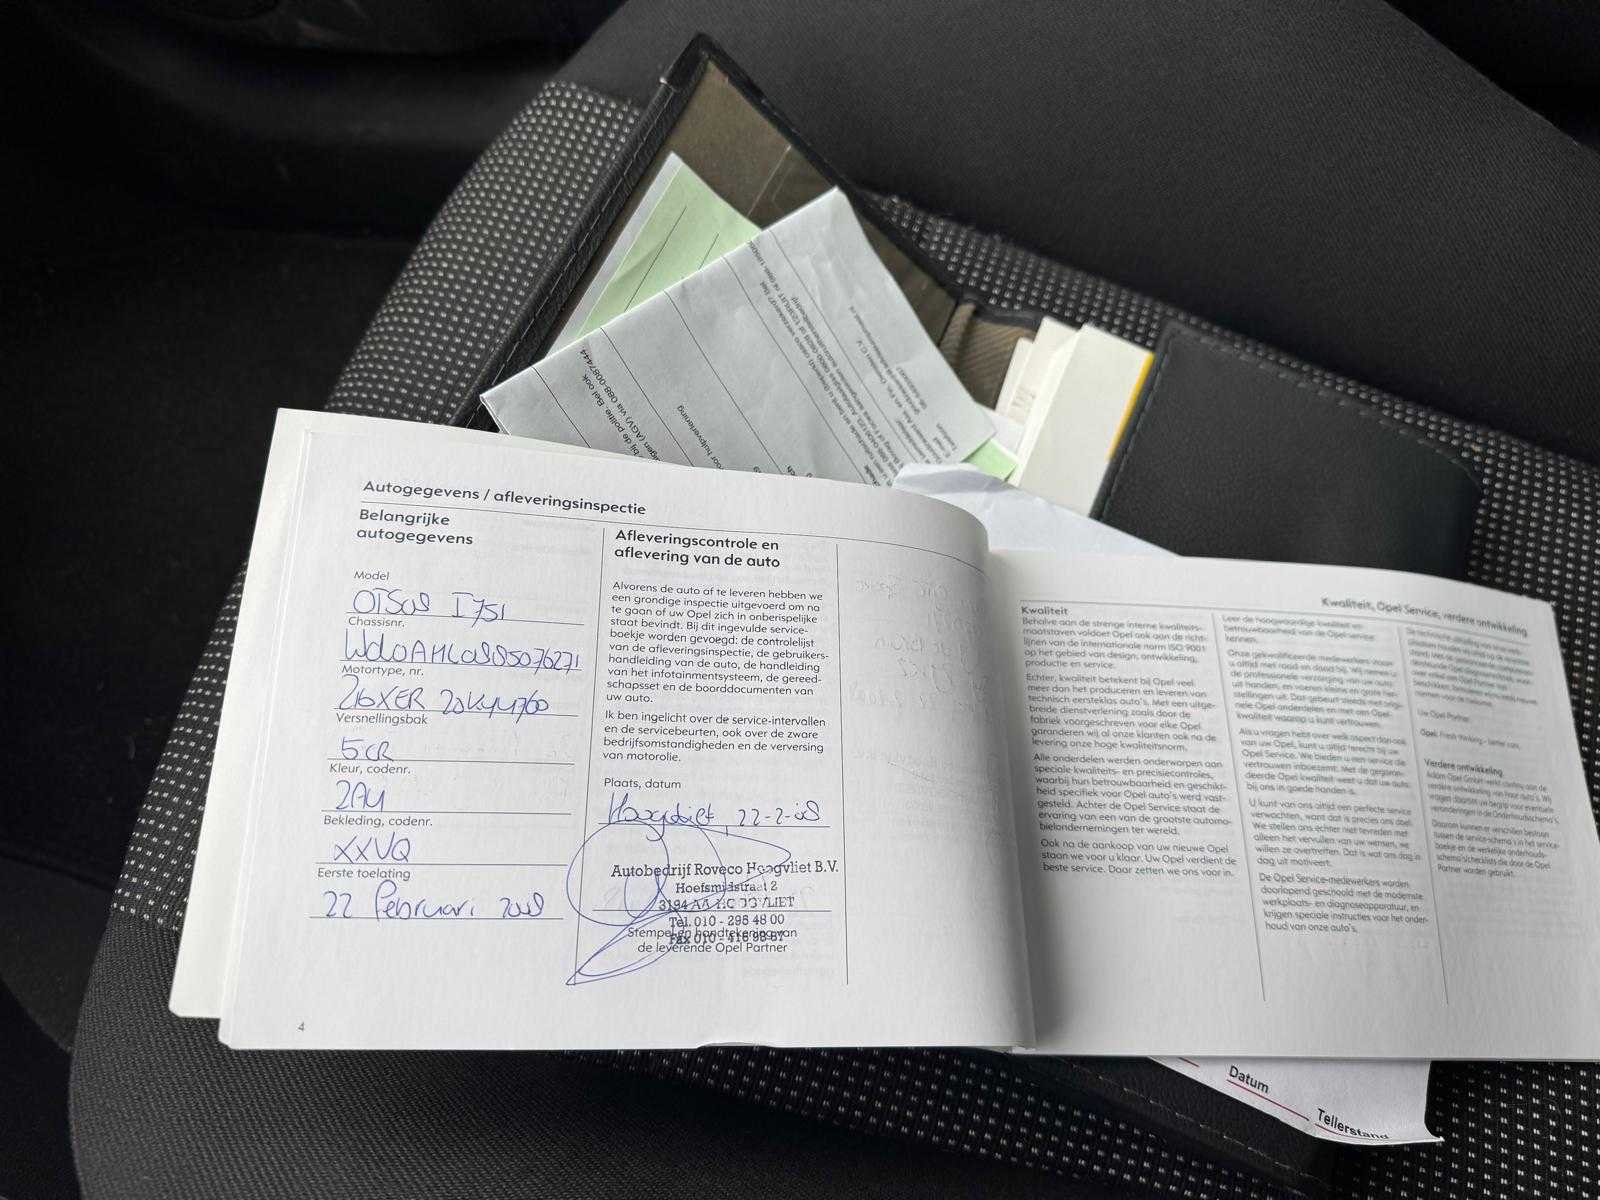 Autogegevens / afleveringsinspectie
Belangrijke
autogegevens
Model
Chassisnr.
W0L0AHL0885076271
Motortype, nr.
Z16XER 20KY4760
Versnellingsbak
5CR
Kleur, codenr.
2AU
Bekleding, codenr.
XXVQ
Eerste toelating
22 Februari 2008
4
Afleveringscontrole en
aflevering van de auto
Alvorens de auto af te leveren hebben we
een grondige inspectie uitgevoerd om na
te gaan of uw Opel zich in onberispelijke
staat bevindt. Bij dit ingevulde service-
boekje worden gevoegd: de controlelijst
van de afleveringsinspectie, de gebruikers-
handleiding van de auto, de handleiding
van het infotainmentsysteem, de gereed-
schapsset en de boorddocumenten van
uw auto.
Ik ben ingelicht over de service-intervallen
en de servicebeurten, ook over de zware
bedrijfsomstandigheden en de verversing
van motorolie.
Plaats, datum
Hoogvliet 22-2-08
Autobedrijf Roveco Hoogvliet B.V.
Hoefsmidstraat 2
3194 AA HOOGVLIET
Tel. 010 - 295 48 00
Fax 010 - 416 98 87
Stempel en handtekening van
de leverende Opel Partner
Kwaliteit, Opel Service, verdere ontwikkeling
Kwaliteit
Behalve aan de strenge interne kwaliteits-
maatstaven voldoet Opel ook aan de richt-
lijnen van de internationale norm ISO 9001
op het gebied van design, ontwikkeling,
productie en service.
Echter, kwaliteit betekent bij Opel veel
meer dan het produceren en leveren van
technisch eersteklas auto's. Met een uitge-
breide dienstverlening zoals door de
fabriek voorgeschreven voor elke Opel
garanderen wij al onze klanten ook na de
levering onze hoge kwaliteitsnorm.
Alle onderdelen werden onderworpen aan
speciale kwaliteits- en precisiecontroles,
waarbij hun betrouwbaarheid en geschikt-
heid specifiek voor Opel auto's werd vast-
gesteld. Achter de Opel Service staat de
ervaring van een van de grootste automo-
bielondernemingen ter wereld.
Ook na de aankoop van uw nieuwe Opel
staan we voor u klaar. Uw Opel verdient de
beste service. Daar zetten we ons voor in.
Leer de hoogwaardige kwaliteit en
betrouwbaarheid van de Opel service
kennen.
Onze gekwalificeerde medewerkers voor-
u altijd met raad en daad bij. Wij nemen u
de professionele verzorging van uw auto
uit handen, en voeren kleine en grote her-
stellingen uit. Dat gebeurt steeds met origi-
nele Opel onderdelen en met een Opel-
kwaliteit waarop u kunt vertrouwen.
Als u vragen hebt over welk aspect dan ook
van uw Opel, kunt u altijd terecht bij uw
Opel Service. We bieden u een service die
vertrouwen inboezemt. Met de gegaran-
deerde Opel kwaliteit weet u dat uw auto
bij ons in goede handen is.
U kunt van ons altijd een perfecte service
verwachten, want dat is precies ons doel.
We stellen ons echter niet tevreden met
alleen het vervullen van uw wensen, we
willen ze overtreffen. Dat is wat ons dag in
dag uit motiveert.
De Opel Service-medewerkers worden
doorlopend geschoold met de modernste
werkplaats- en diagnoseapparatuur, en
krijgen speciale instructies voor het onder-
houd van onze auto's.
Uw Opel Partner
Opel. Fresh thinking - better cars.
Verdere ontwikkeling
Datum
Tellerstand